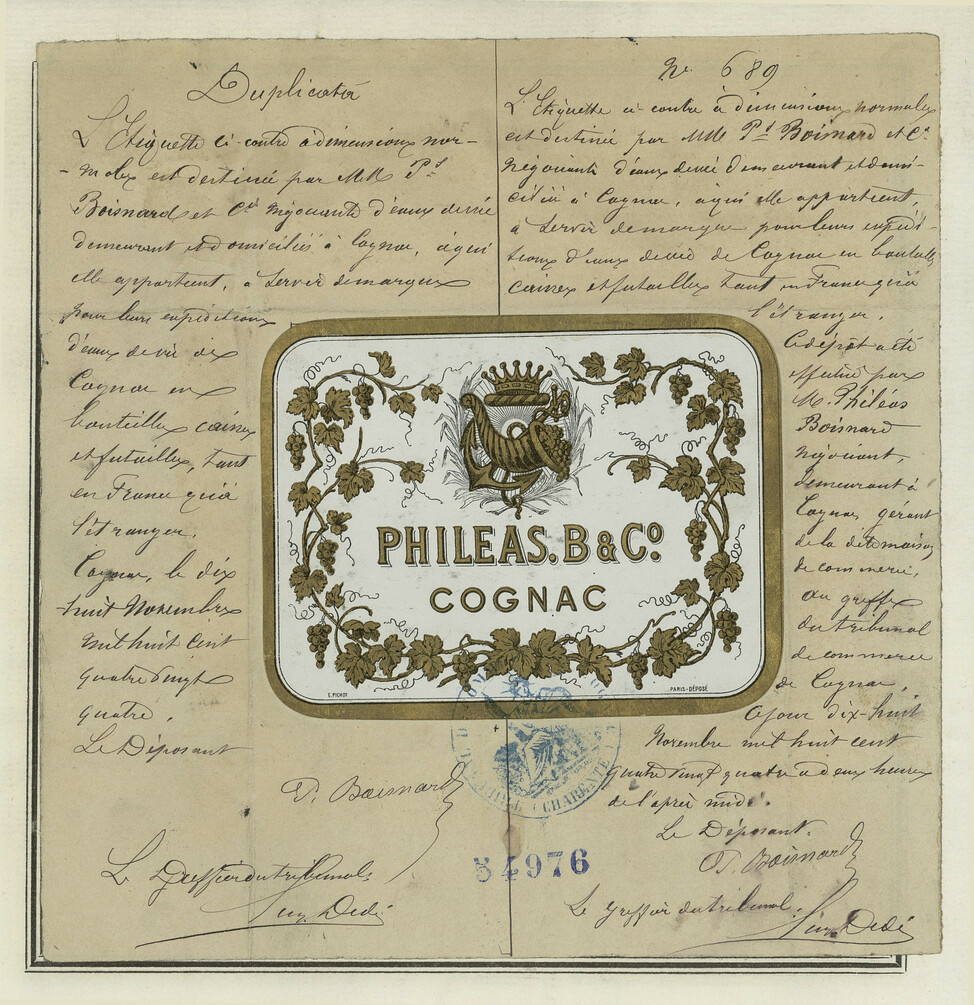 Duplicata
L'Etiquette ci-contre à dimensions nor-
-males est destinée par MM Pas
Boisnard et Cie négociants d'eaux de vie
demeurant et domiciliés à Cognac, à qui
elle appartient, à servir de marque
pour leurs expéditions
d'eaux de vie de
Cognac en
bouteilles caisses
et futailles, tant
en France qu'à
l'étranger.
Cognac, le dix
huit Novembre
mil huit cent
quatre vingt
quatre.
Le Déposant
P. Boisnard
Le Greffier du tribunal
Dedé
No 689
L'Etiquette ci-contre à dimensions normales
est destinée par MM Pas Boisnard et Cie
négociants d'eaux de vie demeurant et domi-
ciliés à Cognac, à qui elle appartient,
à servir de marque pour leurs expédi-
tions d'eaux de vie de Cognac en bouteilles
caisses et futailles tant en France qu'à
l'étranger.
Ce dépôt a été
effectué par
M. Philéas
Boisnard
négociant,
demeurant à
Cognac gérant
de la dite maison
de commerce,
au greffe
du tribunal
de commerce
de Cognac,
Ce jour dix-huit
Novembre mil huit cent
quatre vingt quatre à deux heures
de l'après midi.
Le Déposant.
P. Boisnard
Le greffier du tribunal.
Dedé
PHILEAS. B & Co.
COGNAC
E. PICHOT
PARIS-DÉPOSÉ
CHARENTE
54976